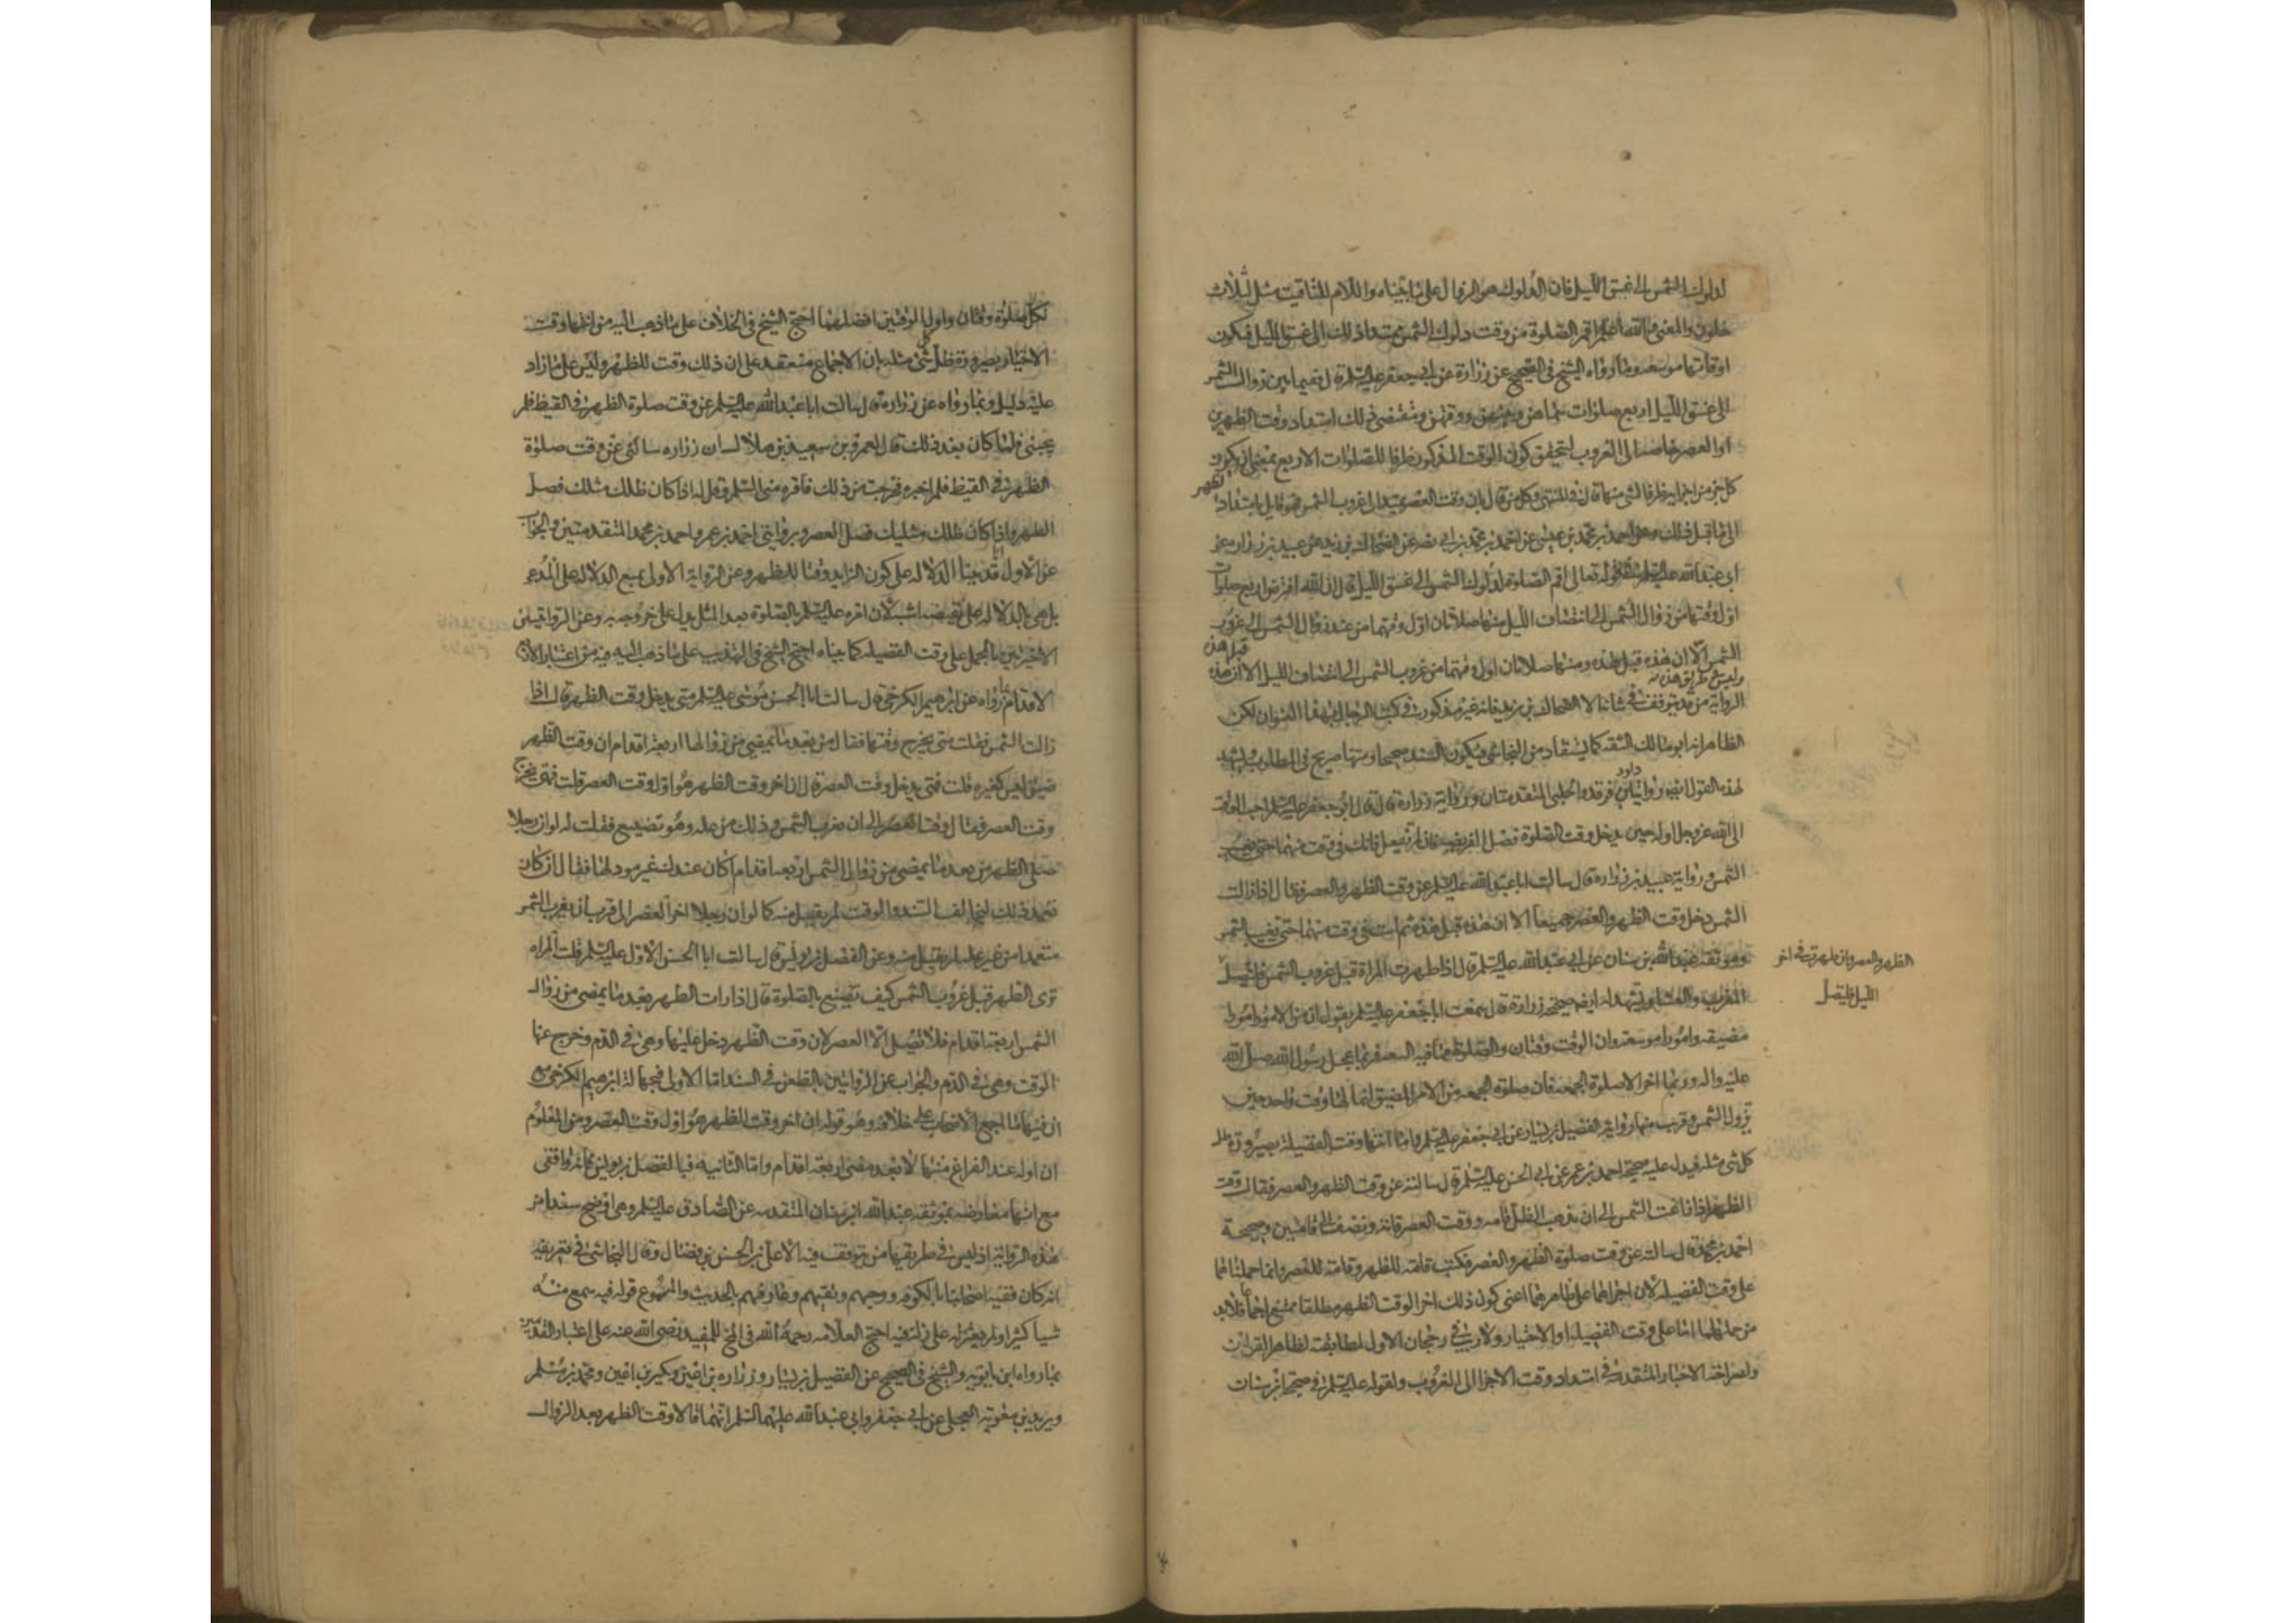 لدلوك الشمس الى غسق الليل فان الدلوك هو الزوال على ما بيناه واللام للتاقيت مثل لثلاث
خلون والمعنى والله اعلم اقم الصلوة من وقت دلوك الشمس ممتدا ذلك الى غسق الليل فيكون
اوقاتها موسعه وما رواه الشيخ في الصحيح عن زرارة عن ابي جعفر عليه السلم قال ففيما بين زوال الشمس
الى غسق الليل اربع صلوات سماهن وبينهن ووقتهن ومقتضى ذلك امتداد وقت الظهرين
او العصر خاصه الى الغروب ليتحقق كون الوقت المذكور ظرفا للصلوات الاربع بمعنى ان يكون
كل جزء من اجزايه ظرفا لشي منها قاله في المنتهى وكل من قال بان وقت العصر يمتد الى غروب الشمس فهو قايل بامتداد الظهر
الى ما قبل ذلك وعن احمد بن محمد بن عيسى عن احمد بن محمد بن ابي نصر عن الضحاك بن زيد عن عبيد بن زرارة عن
ابي عبد الله عليه السلم في قوله تعالى اقم الصلوة لدلوك الشمس الى غسق الليل قال ان الله افترض اربع صلوات
اول وقتها من زوال الشمس الى انتصاف الليل منها صلاتان اول وقتهما من عند زوال الشمس الى غروب
الشمس الا ان هذه قبل هذه ومنها صلاتان اول وقتهما من غروب الشمس الى انتصاف الليل الا ان هذه قبل هذه
وليس في طريق هذه
الرواية من قد يتوقف في شانه الا الضحاك بن زيد فانه غير مذكور في كتب الرجال بهذا العنوان لكن
الظاهر انه ابو مالك الثقه كما يستفاد من النجاشي فيكون السند صحيحا ومتنها صريح في المطلوب ويشهد
لهذه القول ايضا روايتا بن فرقد والحلبي المتقدمتان ورواية زرارة قال قال ابو جعفر عليه السلم احب الوقت
داود
الى الله عز وجل اوله حين يدخل وقت الصلوة فصل الفريضه فان لم تفعل فانك في وقت منهما حتى تغيب
الشمس ورواية عبيد بن زرارة قال سالت ابا عبد الله عليه السلم عن وقت الظهر والعصر فقال اذا زالت
الشمس دخل وقت الظهر والعصر جميعا الا ان هذه قبل هذه ثم انت في وقت منهما حتى تغيب الشمس
وموثقه عبد الله بن سنان عن ابي عبد الله عليه السلم قال اذا طهرت المراة قبل غروب الشمس فلتصل
الظهر والعصر وان طهرت في اخر
الليل فليصل
المغرب والعشا ويشهد له ايضا صحيحه زرارة قال سمعت ابا جعفر عليه السلم يقول ان من الامور امورا
مضيقه وامورا موسعه وان الوقت وقتان والصلوة مما فيه السعه فربما عجل رسول الله صلى الله
عليه واله وربما اخر الا صلوة الجمعه فان صلوة الجمعه من الامر المضيق انما لها وقت واحد حين
تزول الشمس وقرب منها رواية الفضيل بن يسار عن ابي جعفر عليه السلم واما انتها وقت الفضيلة بصيرورة ظل
كل شي مثله فيدل عليه صحيحه احمد بن عمر عن ابي الحسن عليه السلم قال سالته عن وقت الظهر والعصر فقال وقت
الظهر اذا زاغت الشمس الى ان يذهب الظل قامه ووقت العصر قامة ونصف الى قامتين وصحيحة
احمد بن محمد قال سالته عن وقت صلوة الظهر والعصر فكتب قامه للظهر وقامه للعصر وانما حملناهما
على وقت الفضيله لان اجراهما على ظاهرهما اعني كون ذلك اخر الوقت الظهر مطلقا ممتنع اجماعا فلابد
من حملهما اما على وقت الفضيله او الاختيار ولا ريب في رجحان الاول لمطابقته لظاهر القران
ولصراحة الاخبار المتقدمة في امتداد وقت الاجزا الى الغروب ولقوله عليه السلم في صحيحه ابن سنان
لكل صلوة وقتان واول الوقتين افضلهما احتج الشيخ في الخلاف على ما ذهب اليه من انتها وقت
الاختيار بصيرورة ظل كل شي مثله بان الاجماع منعقد على ان ذلك وقت للظهر وليس على ما زاد
عليه دليل وبما رواه عن زرارة قال سالت ابا عبد الله عليه السلم عن وقت صلوة الظهر في القيظ فلم
يجبني فلما كان بعد ذلك قال لعمرو بن سعيد بن هلال ان زراره سالني عن وقت صلوة
الظهر في القيظ فلم اخبره فحرجت من ذلك فاقره مني السلم وقل له اذا كان ظلك مثلك فصل
الظهر واذا كان ظلك مثليك فصل العصر وبروايتي احمد بن عمر واحمد بن محمد المتقدمتين والجواب
عن الاول انا قد بينا الدلاله على كون الزايد وقتا للظهر وعن الرواية الاولى بمنع الدلاله على المدعى
بل هي بالدلاله على نقيضه اشبه لان امره عليه السلم بالصلوة بعد المثل يدل على عدم خروجه به وعن الروايتين
الاخيرتين بالحمل على وقت الفضيله كما بيناه احتج الشيخ في التهذيب على ما ذهب اليه فيه من اعتبار الاربعة
الاقدام بما رواه عن ابرهيم الكرخي قال سالت ابا الحسن موسى عليه السلم متى يدخل وقت الظهر قال اذا
زالت الشمس فقلت متى يخرج وقتها فقال من بعد ما يمضي من زوالها اربعة اقدام ان وقت الظهر
ضيق ليس كغيره قلت فمتى يدخل وقت العصر قال ان اخر وقت الظهر هو اول وقت العصر قلت فمتى يخرج
وقت العصر فقال وقت العصر الى ان تغرب الشمس وذلك من عله وهو تضييع فقلت له لو ان رجلا
صلى الظهر من بعد ما يمضي من زوال الشمس اربعه اقدام اكان عندك غير مود لها فقال ان كان
تعمد ذلك ليخالف السنه والوقت لم يقبل منه كما لو ان رجلا اخر العصر الى قرب ان تغرب الشمس
متعمدا من غير عله لم يقبل منه وعن الفضل بن يونس قال سالت ابا الحسن الاول عليه السلم قلت المراه
ترى الطهر قبل غروب الشمس كيف تصنع بالصلوة قال اذا رات الطهر بعد ما يمضي من زوال
الشمس اربعة اقدام فلا تصلي الا العصر لان وقت الظهر دخل عليها وهي في الدم وخرج عنها
الوقت وهي في الدم والجواب عن الروايتين بالطعن في السند اما الاولى فبجهالة ابرهيم الكرخي مع
ان فيها ما اجمع الاصحاب على خلافه وهو قوله ان اخر وقت الظهر هو اول وقت العصر ومن المعلوم
ان اوله عند الفراغ منها لا بعد مضي اربعة اقدام واما الثانيه فبالفضل بن يونس فانه واقفي
مع انها معارضه بموثقه عبد الله ابن سنان المتقدمه عن الصادق عليه السلم وهي اوضح سندا من
هذه الرواية اذ ليس في طريقها من يتوقف فيه الا علي بن الحسن بن فضال وقال النجاشي في تعريفه
انه كان فقيه اصحابنا بالكوفه ووجههم وثقتهم وعارفهم بالحديث والمسموع قوله فيه سمع منه
شيا كثيرا ولم يعثر له على زلة فيه احتج العلامه رحمة الله في المخ للمفيد رضي الله عنه على اعتبار القدمين
بما رواه ابن بابويه والشيخ في الصحيح عن الفضيل بن يسار وزراره بن اعين وبكير بن اعين ومحمد بن مسلم
وبريد بن معويه العجلي عن ابي جعفر وابي عبد الله عليهما السلم انهما قالا وقت الظهر بعد الزوال